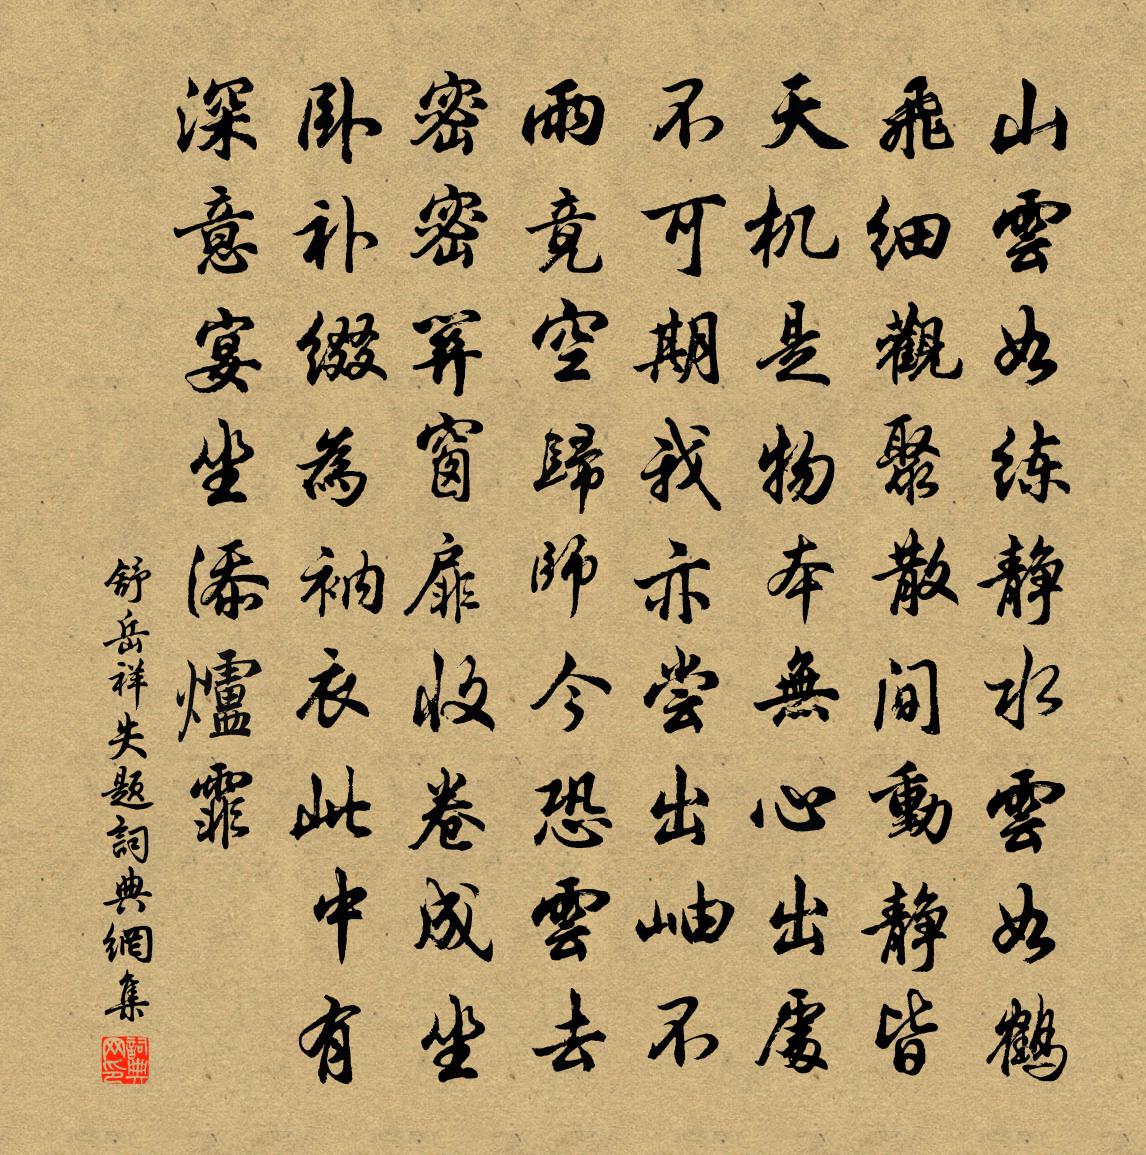 山雲如练静水雲如鹤
飛细觀聚散间動静皆
天机是物本無心出處
不可期我亦尝出岫不
雨竟空歸師今恐雲去
密密罪窗扉收卷成坐
卧补缀為衲衣此中有
深意宴坐添爐霏
舒岳祥失题詞典網集
詞典网印